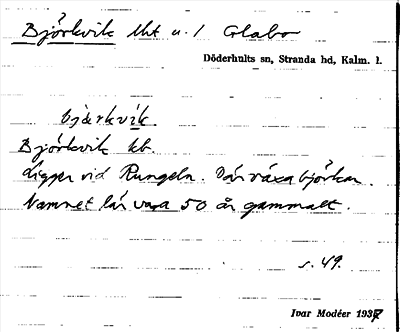 Björkvik lht u. / Glabo
Döderhults sn, Stranda hd, Kalm. l.
bjàrkvík.
Björkvik kb.
Ligger vid Rungeln. Där växa björkar.
Namnet lär vara 50 år gammalt.
s. 49.
Ivar Modéer 1937